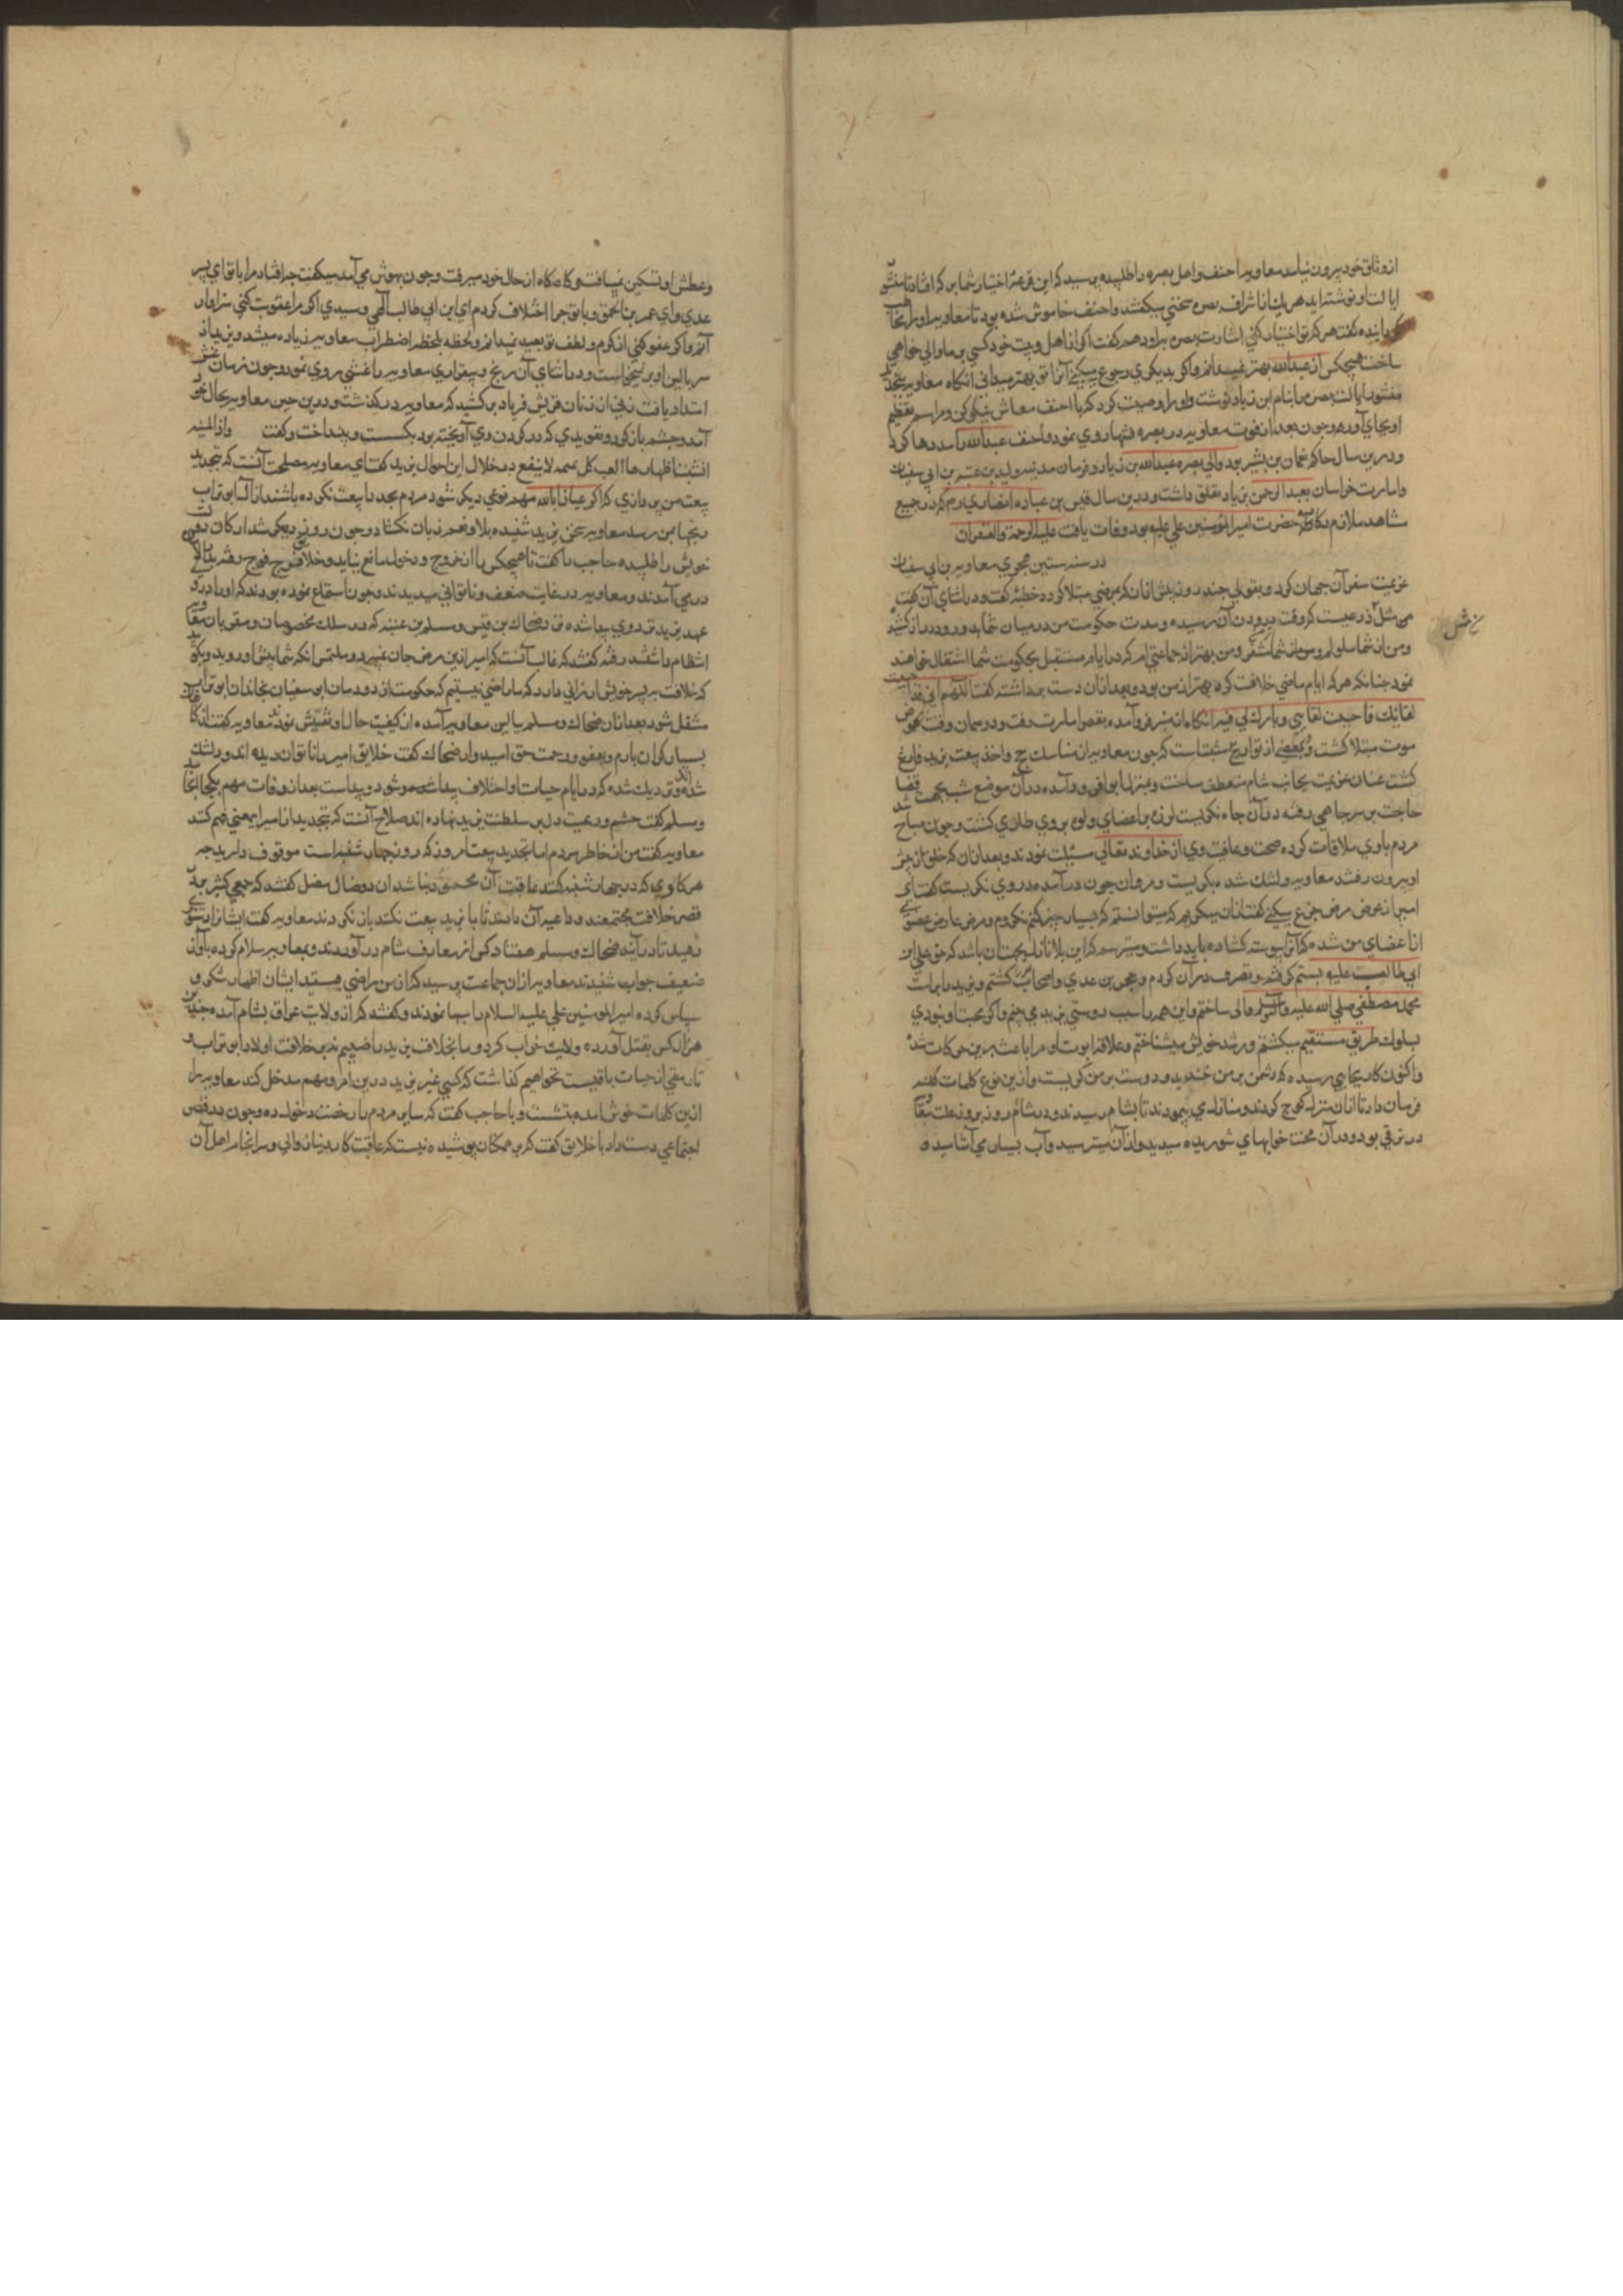 از وثاق خود بیرون نیامد معاویه احنف و اهل بصره را طلبیده پرسید که این قرعه اختیار شما بر که افتاد تا منشور
ایالت او نوشته اید هر یك از اشراف بصره سخنی میکفتند و احنف خاموش شده بود تا معاویه او را مخاطب
کردانیده کفت هر که تو اختیار کنی امارت بصره براو دهم کفت اکر از اهل بیت خود کسی بر ما والی خواهی
ساخت هیچکس از عبدالله بهتر نمیدانم و اکر بدیکری رجوع میکنی آنرا تو بهتر میدانی انکاه معاویه بتجدید
منشور ایالت بصره بنام ابن زیاد نوشت و او را وصیت کرد که با احنف معاش نیکو کن و مراسم تعظیم
او بجای آور و چون بعد از فوت معاویه در بصره فتنها روی نمود احنف عبدالله را مددها کرد
و درین سال حاکم نعمان بن بشیر بود و والی بصره عبدالله بن زیاد و فرمان مدینه ولید بن عتبه بن ابی سفیان
و امارت خراسان بعبدالرحمن بن زیاد تعلق داشت و درین سال قیس بن عباده انصاری و هم که در جمیع
مشاهد ملازم رکاب حضرت امیرالمؤمنین علی علیه بود وفات یافت علیه الرحمة والغفران
در سنه ستین هجری معاویه بن ابی سفیان
عزیمت سفر آن جهان کرد و بقولی چند روز پیش از آن که بمرضی مبتلا کردد خطبه کفت و در اثنای آن کفت
من مثل ذرعیست که وقت درودن آن رسیده و مدت حکومت من در میان شما بدور و دراز کشید
و من از شما ملولم و شما از من و من بهتر از جماعتی ام که در ایام مستقبل بحکومت شما اشتغال خواهند
نمود چنانکه هر که ایام ماضی خلافت کرده بهتر از من بود و بعد از آن دست برداشته کفت اللهم انی قد احببت
لقائك فاحبب لقایی و بارك لی فیه انکاه از منبر فرو آمده بقصر امارت رفت و در همان وقت بمرض
موت مبتلا کشت و بعضی از تواریخ مثبت است که چون معاویه از مناسك حج و اخذ بیعت یزید فارغ
کشت عنان عزیمت بجانب شام منعطف ساخت و بمنزل ابوا فرود آمده در آن موضع شب بجهت قضا
حاجت بر سر چاهی رفته در آن چاه نکریست لرزه بر اعضای و لوه بر وی طاری کشت و چون صباح شد
مردم با وی ملاقات کرده صحت و عافیت وی از خداوند تعالی مسئلت نمودند و بعد از آن که خلق از پیش
او بیرون رفتند معاویه دلتنك شده بکریست و مروان چون درآمده در وی نکریست کفت ای
امیر از عوض مرض جزع میکنی کفت از آن میکریم که میتوانستم که بسیار چیز کنم نکردم و مرض عارض عضوی
از اعضای من شده که آنرا پیوسته کشاده باید داشت و میترسم که این بلا نازله بجهت آن باشد که حق علی ابن
ابی طالب علیه بستم کرفته و تصرف در آن کردم و حجر بن عدی و اصحاب کشتم و یزید را بر امت
محمد مصطفی صلی الله علیه و آله وسلم والی ساختم و این همه را سبب دوستی یزید می بینم و اکر محبت او نبودی
بسلوك طریق مستقیم میکشتم و رشد خویش میشناختم و علاقه ابوت او مرا باعث برین حرکات شد
و اکنون کار بجایی رسیده که دشمن بر من خندید و دوست بر من کریست و ازین نوع کلمات کفته
فرمان داد تا از آن منزل کوچ کردند و منازل می پیمودند تا بشام رسیدند و در شام روز بروز علت معاویه
در ترقی بود و در آن محنت خوابهای شوریده میدید و از آن میترسید و آب بسیار می آشامید و
وعطش او تسکین نمیافت و کاه کاه از حال خود میرفت و چون بهوش می آمد میکفت چه افتاد مرا با تو ای پسر
عدی و ای عمر بن الحمق و با تو چرا اختلاف کردم ای ابن ابی طالب الهی و سیدی اکر مرا عقوبت کنی سزاوار
آنم و اکر عفو کنی از کرم و لطف تو بعید نمیدانم و لحظه بلحظه اضطراب معاویه زیاده میشد و یزید از
سر بالین او بر نمیخاست و در اثنای آن رنج و بیقراری معاویه را غشی روی نمود و چون زمان غشی
امتداد یافت زنی از زنان قریش فریاد برکشید که معاویه درکذشت و درین حین معاویه بحال خود
آمد و چشم باز کرد و تعویذی که در کردن وی آویخته بود بکسست و بینداخت و کفت و اذا المنیه
انشبت اظفارها الفیت کل تمیمة لا تنفع در خلال این احوال یزید کفت ای معاویه مصلحت آنست که تجدید
بیعت من پردازی که اکر عیاذا بالله مهم نوعی دیکر شود مردم مجددا بیعت نکرده باشند از آل ابو تراب
رنجها بمن رسد معاویه سخن یزید شنیده بلا و نعم زبان نکشاد و چون روزی دیکر شد ارکان دولت
خویش را طلبیده حاجب را کفت تا هیچکس را از خروج و دخول مانع نیاید و خلایق فوج فوج رفته ببالین
در می آمدند و معاویه در غایت ضعف و ناتوانی میدیدند و چون استماع نموده بودند که او را درد
عهد یزید تردوی پیدا شده و ضحاك بن قیس و مسلم بن عقبه که در سلك مخصوصان و مقربان معاویه
انتظام داشتند رفته کفتند که غالب آنست که امیر از این مرض جان نمیبرد و ملتمس آنکه شما پیش او روید و بکوئید
که خلافت بر پسر خویش ارزانی دارد که ما راضی نیستیم که حکومت از دودمان ابو سفیان بخاندان ابو تراب
منتقل شود بعد از آن ضحاك و مسلم ببالین معاویه آمده از کیفیت حال او تفتیش نمودند معاویه کفت از کناه
بسیار کران بارم و بعفو و رحمت حق امیدوار ضحاك کفت خلایق امیر را ناتوان دیده اند و دلتنك
شده اند و نزدیك شده که در ایام حیات او اختلاف پیدا شود و پیداست بعد از وفات مهم بکجا انجامد
و مسلم کفت حشم و رعیت دل بر سلطنت یزید نهاده اند صلاح آنست که بتجدید از امیر ایمعنی فهم کنند
معاویه کفت من از خاطر مردم اما تجدید بیعت امروز که روز چهار شنبه است موقوف دارید چه
هر کاری که در چهار شنبه کنند عاقبت آن محمود نباشد آن دو ضال مضل کفتند که جمعی کثیر بر در
قصر خلافت مجتمعند و داعیه آن دارند تا با یزید بیعت نکنند باز نکردند معاویه کفت ایشانرا دستوری
دهید تا درآیند ضحاك و مسلم هفتاد کس از معارف شام درآوردند و بمعاویه سلام کرده بآواز
ضعیف جواب شنیدند معاویه از آن جماعت پرسید که از من راضی هستید ایشان اظهار شکر و
سپاس کرده امیرالمومنین علی علیه السلام را سبها نمودند و کفتند که از ولایت عراق بشام آمده چندین
هزار کس بقتل آورده ولایت خراب کرد و ما بخلافت یزید راضییم نه بر خلافت اولاد ابو تراب و
تا رمقی از حیات باقیست نخواهیم کذاشت که کسی غیر یزید درین امر و مهم مدخل کند معاویه را
ازین کلمات خوش آمده بنشست و با حاجب کفت که سایر مردم را رخصت دخول ده و چون در قصر
اجتماعی دست داد با خلایق کفت که بر همکان پوشیده نیست که عاقبت کار دنیا زوالی و سرانجام اهل آن